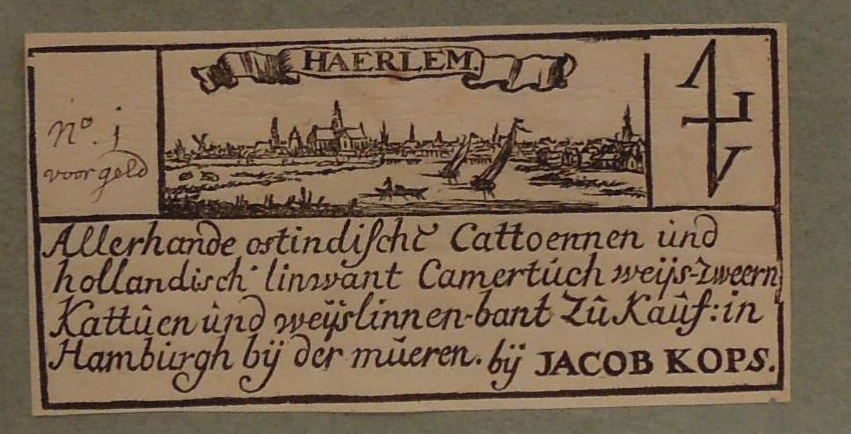 HAERLEM.
No. j
voor geld
Allerhande ostindische Cattoennen und
hollandisch linwant Camertuch weijs-zweern
Kattuen und weijslinnen-bant Zu Kauf: in
Hamburgh bij der mueren. bij JACOB KOPS.